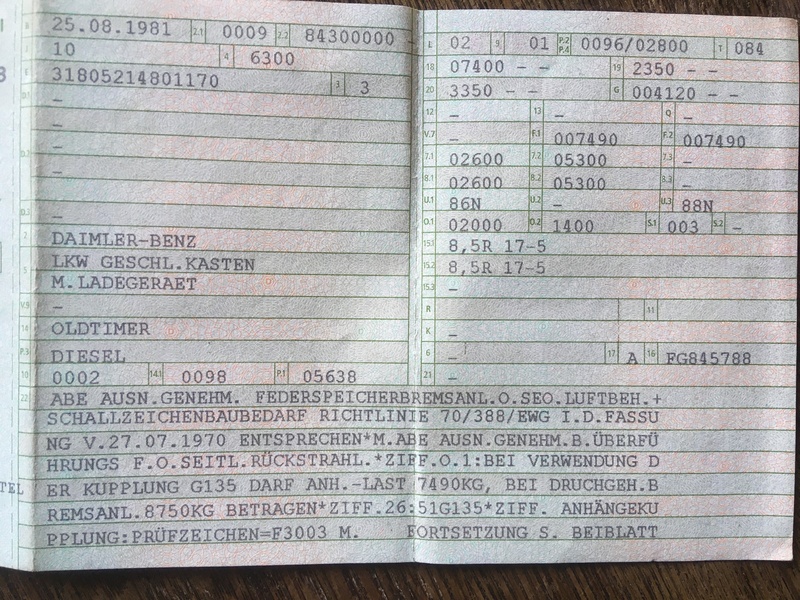 B 25.08.1981 2.1 0009 2.2 84300000
J 10 4 6300
E 31805214801170 3 3
D.1 –
–
–
D.2 –
–
–
D.3 –
2 DAIMLER-BENZ
5 LKW GESCHL.KASTEN
M.LADEGERAET
V.9 –
14 OLDTIMER
P.3 DIESEL
10 0002 14.1 0098 P.1 05638
L 02 9 01 P.2 P.4 0096/02800 T 084
18 07400 – – 19 2350 – –
20 3350 – – G 004120 – –
12 – 13 – Q –
V.7 – F.1 007490 F.2 007490
7.1 02600 7.2 05300 7.3 –
8.1 02600 8.2 05300 8.3 –
U.1 86N U.2 – U.3 88N
O.1 02000 O.2 1400 S.1 003 S.2 –
15.1 8,5R 17-5
15.2 8,5R 17-5
15.3 –
R 11
K –
6 – 17 A 16 FG845788
21 –
22 ABE AUSN.GENEHM. FEDERSPEICHERBREMSANL.O.SEO.LUFTBEH.+
SCHALLZEICHENBAUBEDARF RICHTLINIE 70/388/EWG I.D.FASSU
NG V.27.07.1970 ENTSPRECHEN*M.ABE AUSN.GENEHM.B.ÜBERFÜ
HRUNGS F.O.SEITL.RÜCKSTRAHL.*ZIFF.O.1:BEI VERWENDUNG D
ER KUPPLUNG G135 DARF ANH.-LAST 7490KG, BEI DRUCHGEH.B
REMSANL.8750KG BETRAGEN*ZIFF.26:51G135*ZIFF. ANHÄNGEKU
PPLUNG:PRÜFZEICHEN=F3003 M. FORTSETZUNG S. BEIBLATT